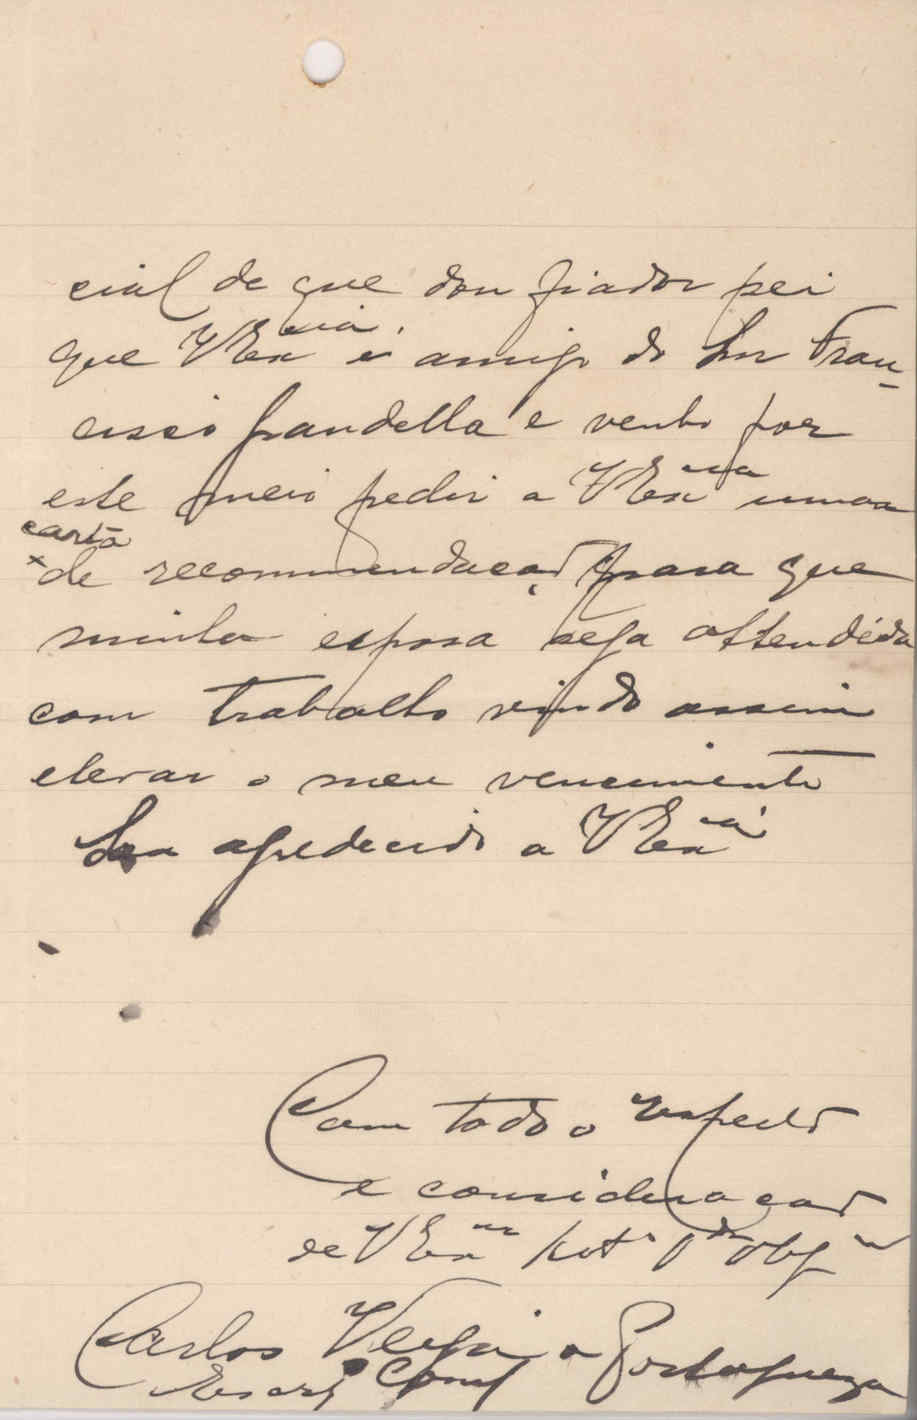 cial de que dou fiador sei
que VExcia. é amigo do Snr Fran-
cisco Grandella e venho por
este meio pedir a VExcia uma
carta
x de recommendação para que
minha esposa seja attendida
com trabalho vindo assim
elevar o meu vencimento
Sou agredecido a VExcia
Com todo o respeito
e consideração
de VExcia
Carlos Veiga